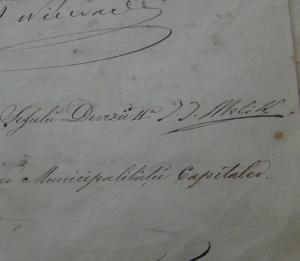 Șefulu Divizii II.a J. J. Melik
Municipalităței Capitalei.